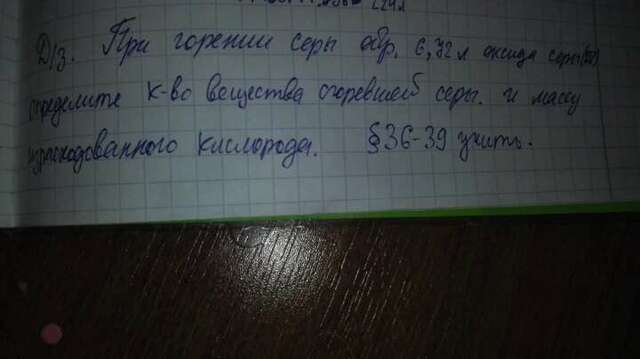 Д/З. При горении серы обр. 6,72 л оксида серы(IV)
определите к-во вещества сгоревшей серы. и массу
израсходованного кислорода. §36-39 учить.